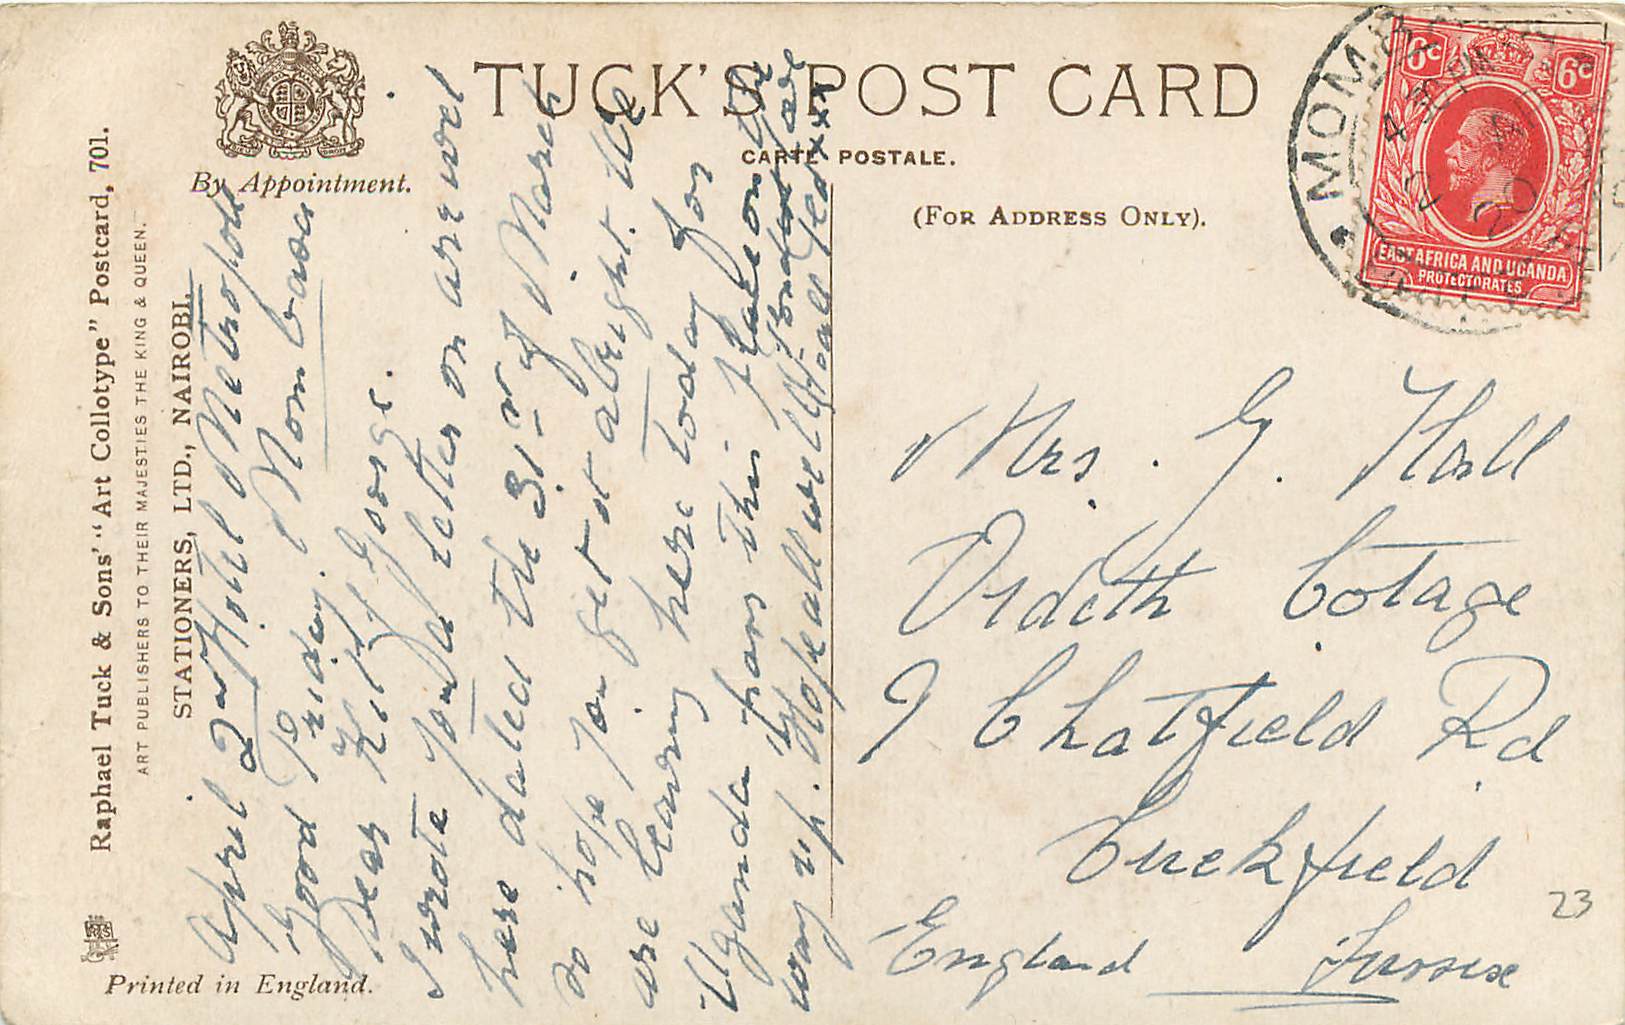 TUCK'S POST CARD
CARTE POSTALE.
(FOR ADDRESS ONLY).
By Appointment.
Raphael Tuck & Sons' "Art Collotype" Postcard, 701.
ART PUBLISHERS TO THEIR MAJESTIES THE KING & QUEEN.
STATIONERS, LTD., NAIROBI.
Printed in England.
April 2nd Hotel Metropole
Good Friday. Mombasa
Dear Kit & George.
I wrote you a letter on are
here dated the 31st of March
so hope you get it alright. We
are leaving here today for
Uganda pass this place on the
way up. Hope all well
love
xxx
6c 6c
EAST AFRICA AND UGANDA
PROTECTORATES
MOMBASA
4 30 PM
2
20
Mrs. G. Hall
Cotage
9 Chatfield Rd
Cuckfield
England Sussex
23